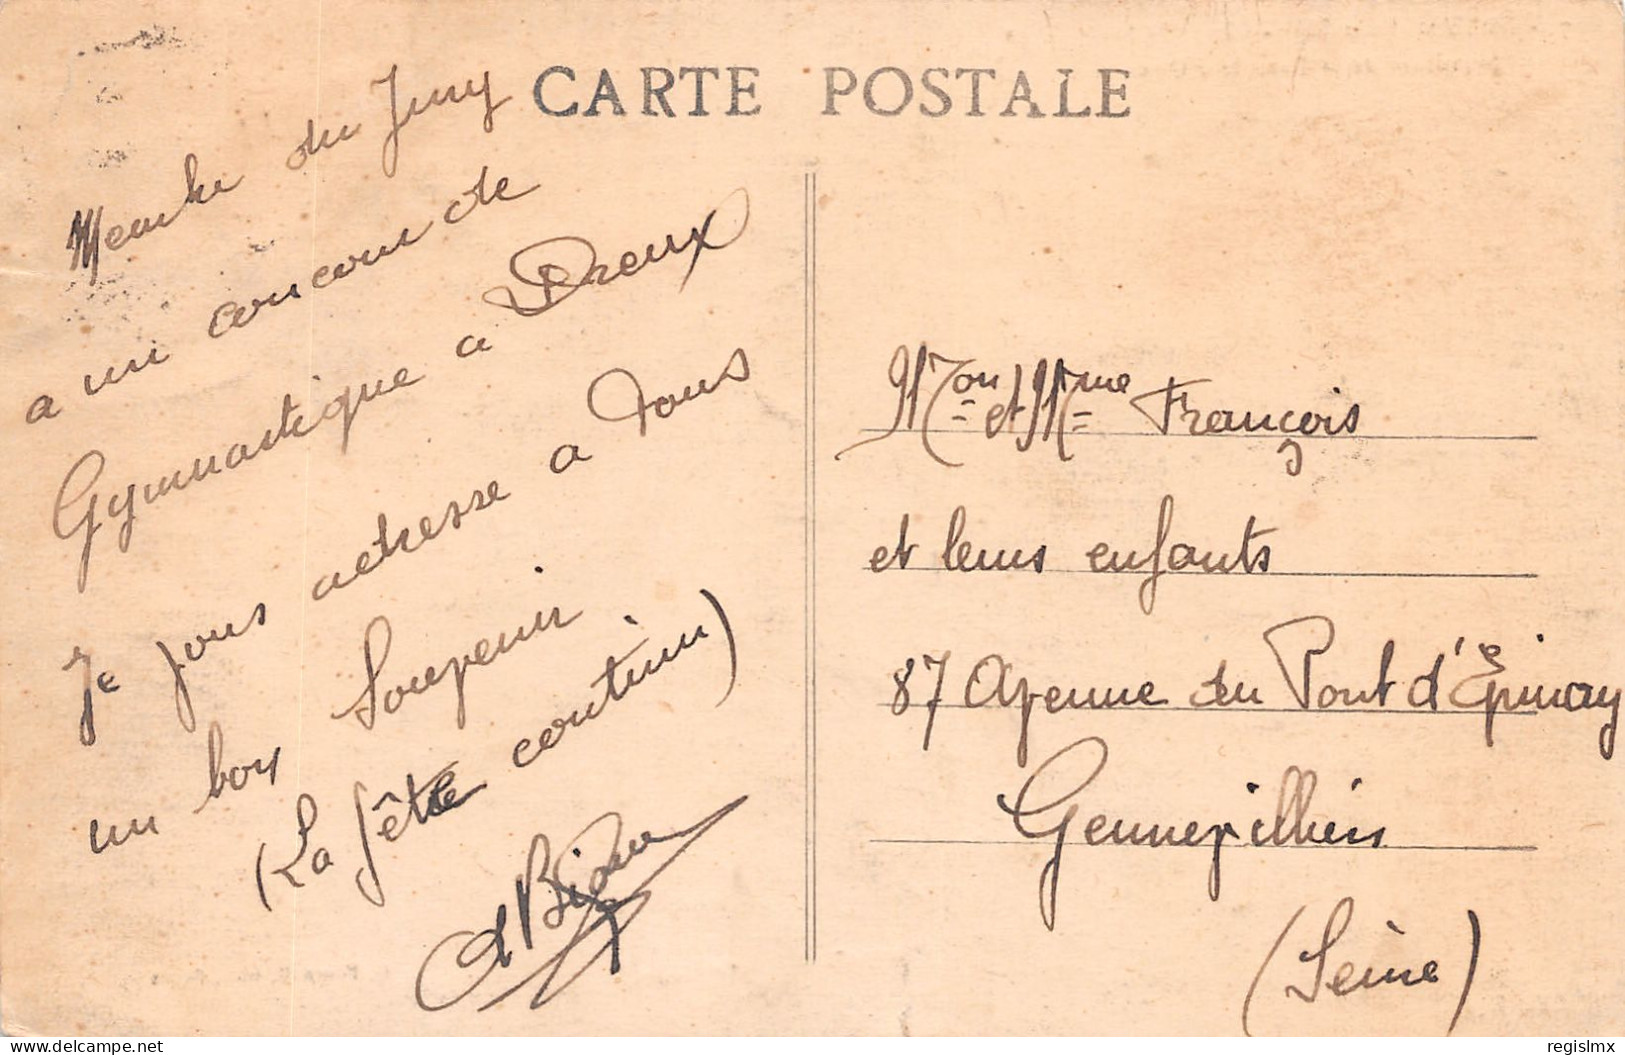 CARTE POSTALE
Membre du Jury
a un concour de
Gymnastique a Dreux
Je vous adresse a Tous
un bon Souvenir
(La fête continu)
Mon et Mme François
et leurs enfants
87 Avenue du Pont d'Epinay
Gennevilliers
(Seine)
delcampe.net
regislmx